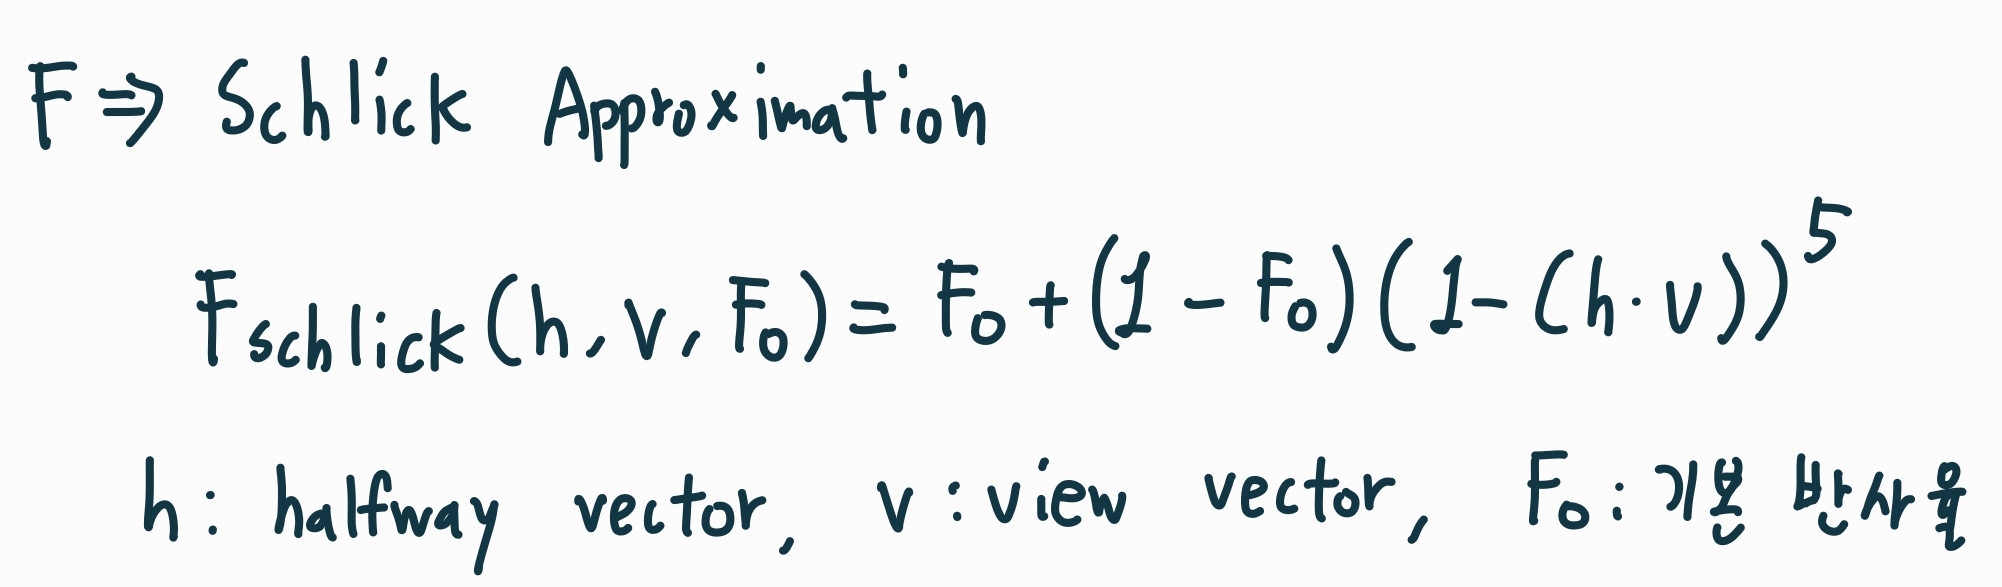 F ⇒ Schlick Approximation
F_schlick(h, v, F₀) = F₀ + (1 - F₀)(1 - (h · v))⁵
h: halfway vector, v: view vector, F₀: 기본 반사율